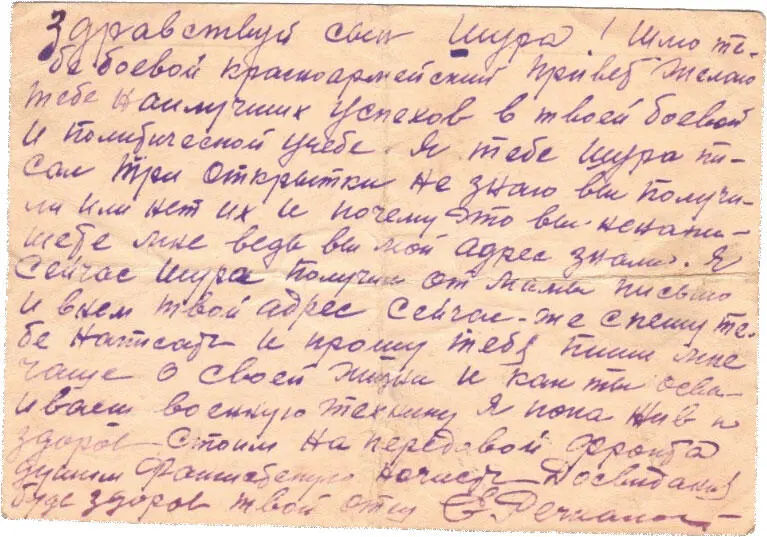 Здравствуй сын Шура! Шлю те-
бе боевой красноармейский привет Желаю
тебе наилучших успехов в твоей боевой
и политической учебе. Я тебе Шура пи-
сал три открытки не знаю вы получи-
ли или нет их и почему это вы ненапи-
шете мне ведь вы мой адрес знали. Я
сейчас Шура получил от мамы письмо
и внем твой адрес сейчас-же спешу те-
бе написать и прошу тебя пиши мне
чаще о своей жизни и как ты осва-
иваеш военную технику Я пока жив и
здоров стоим на передовой фронта
душим фашистскую нечисть Досвидания
будь здоров твой отец